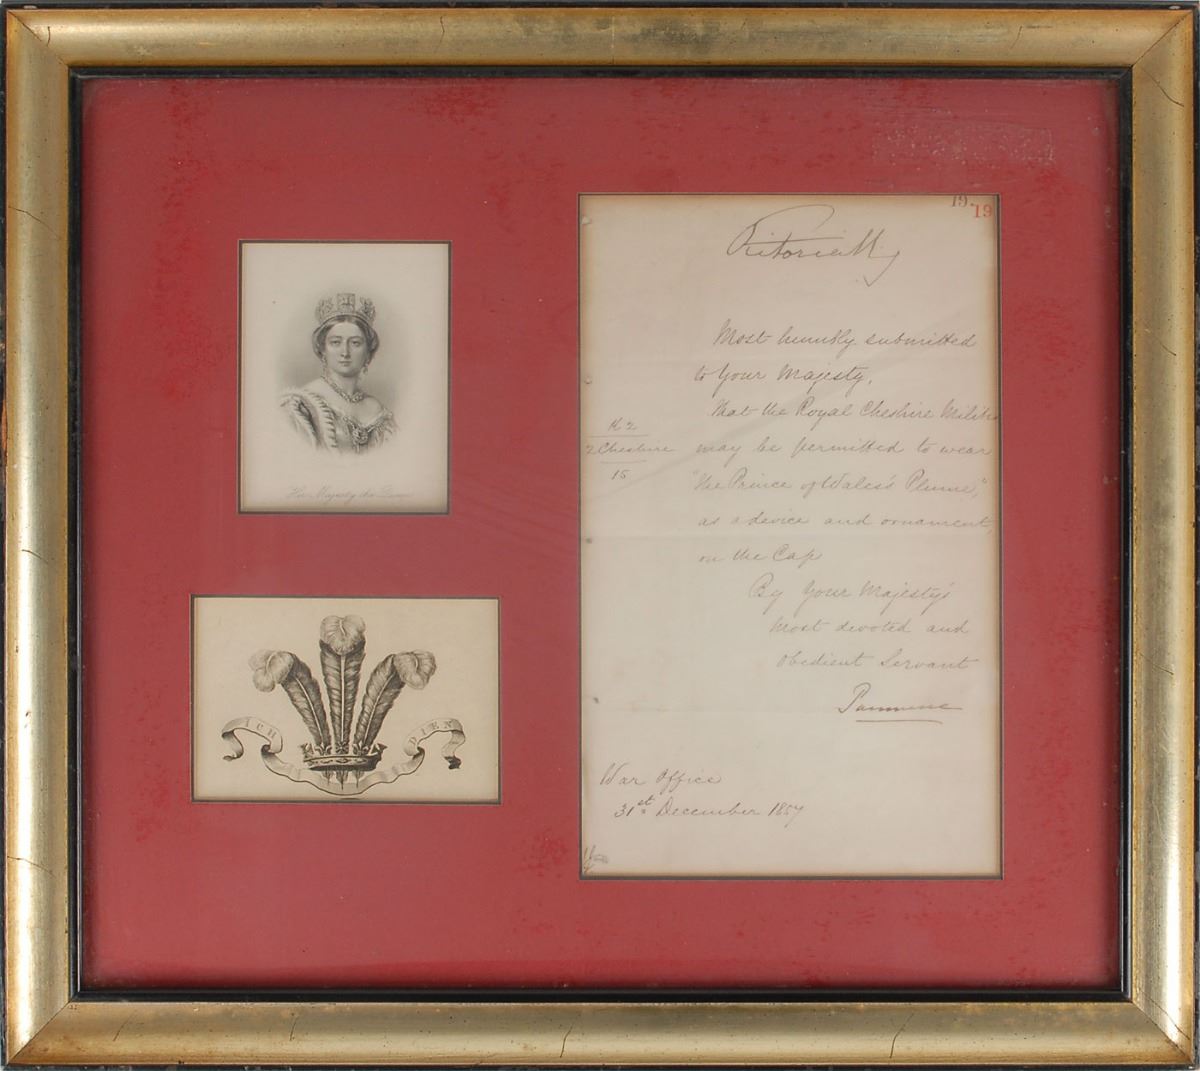 19. 19
Victoria R
Most humbly submitted
to Your Majesty,
That the Royal Cheshire Militi
may be permitted to wear
"the Prince of Wales's Plume",
as a device and ornament,
on the Cap
By Your Majesty's
most devoted and
obedient Servant
Panmure
2 Cheshire
15
War Office
31st December 1857
Her Majesty the Queen
ICH DIEN